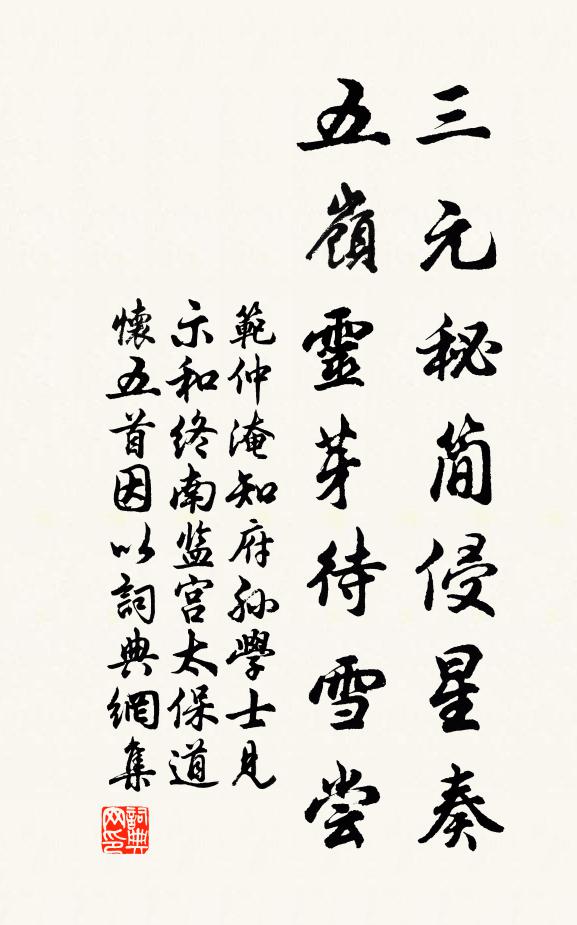 三元秘简侵星奏
五嶺靈芽待雪尝
範仲淹知府孙學士見
示和终南监宫太保道
懷五首因以詞典網集
詞典网印